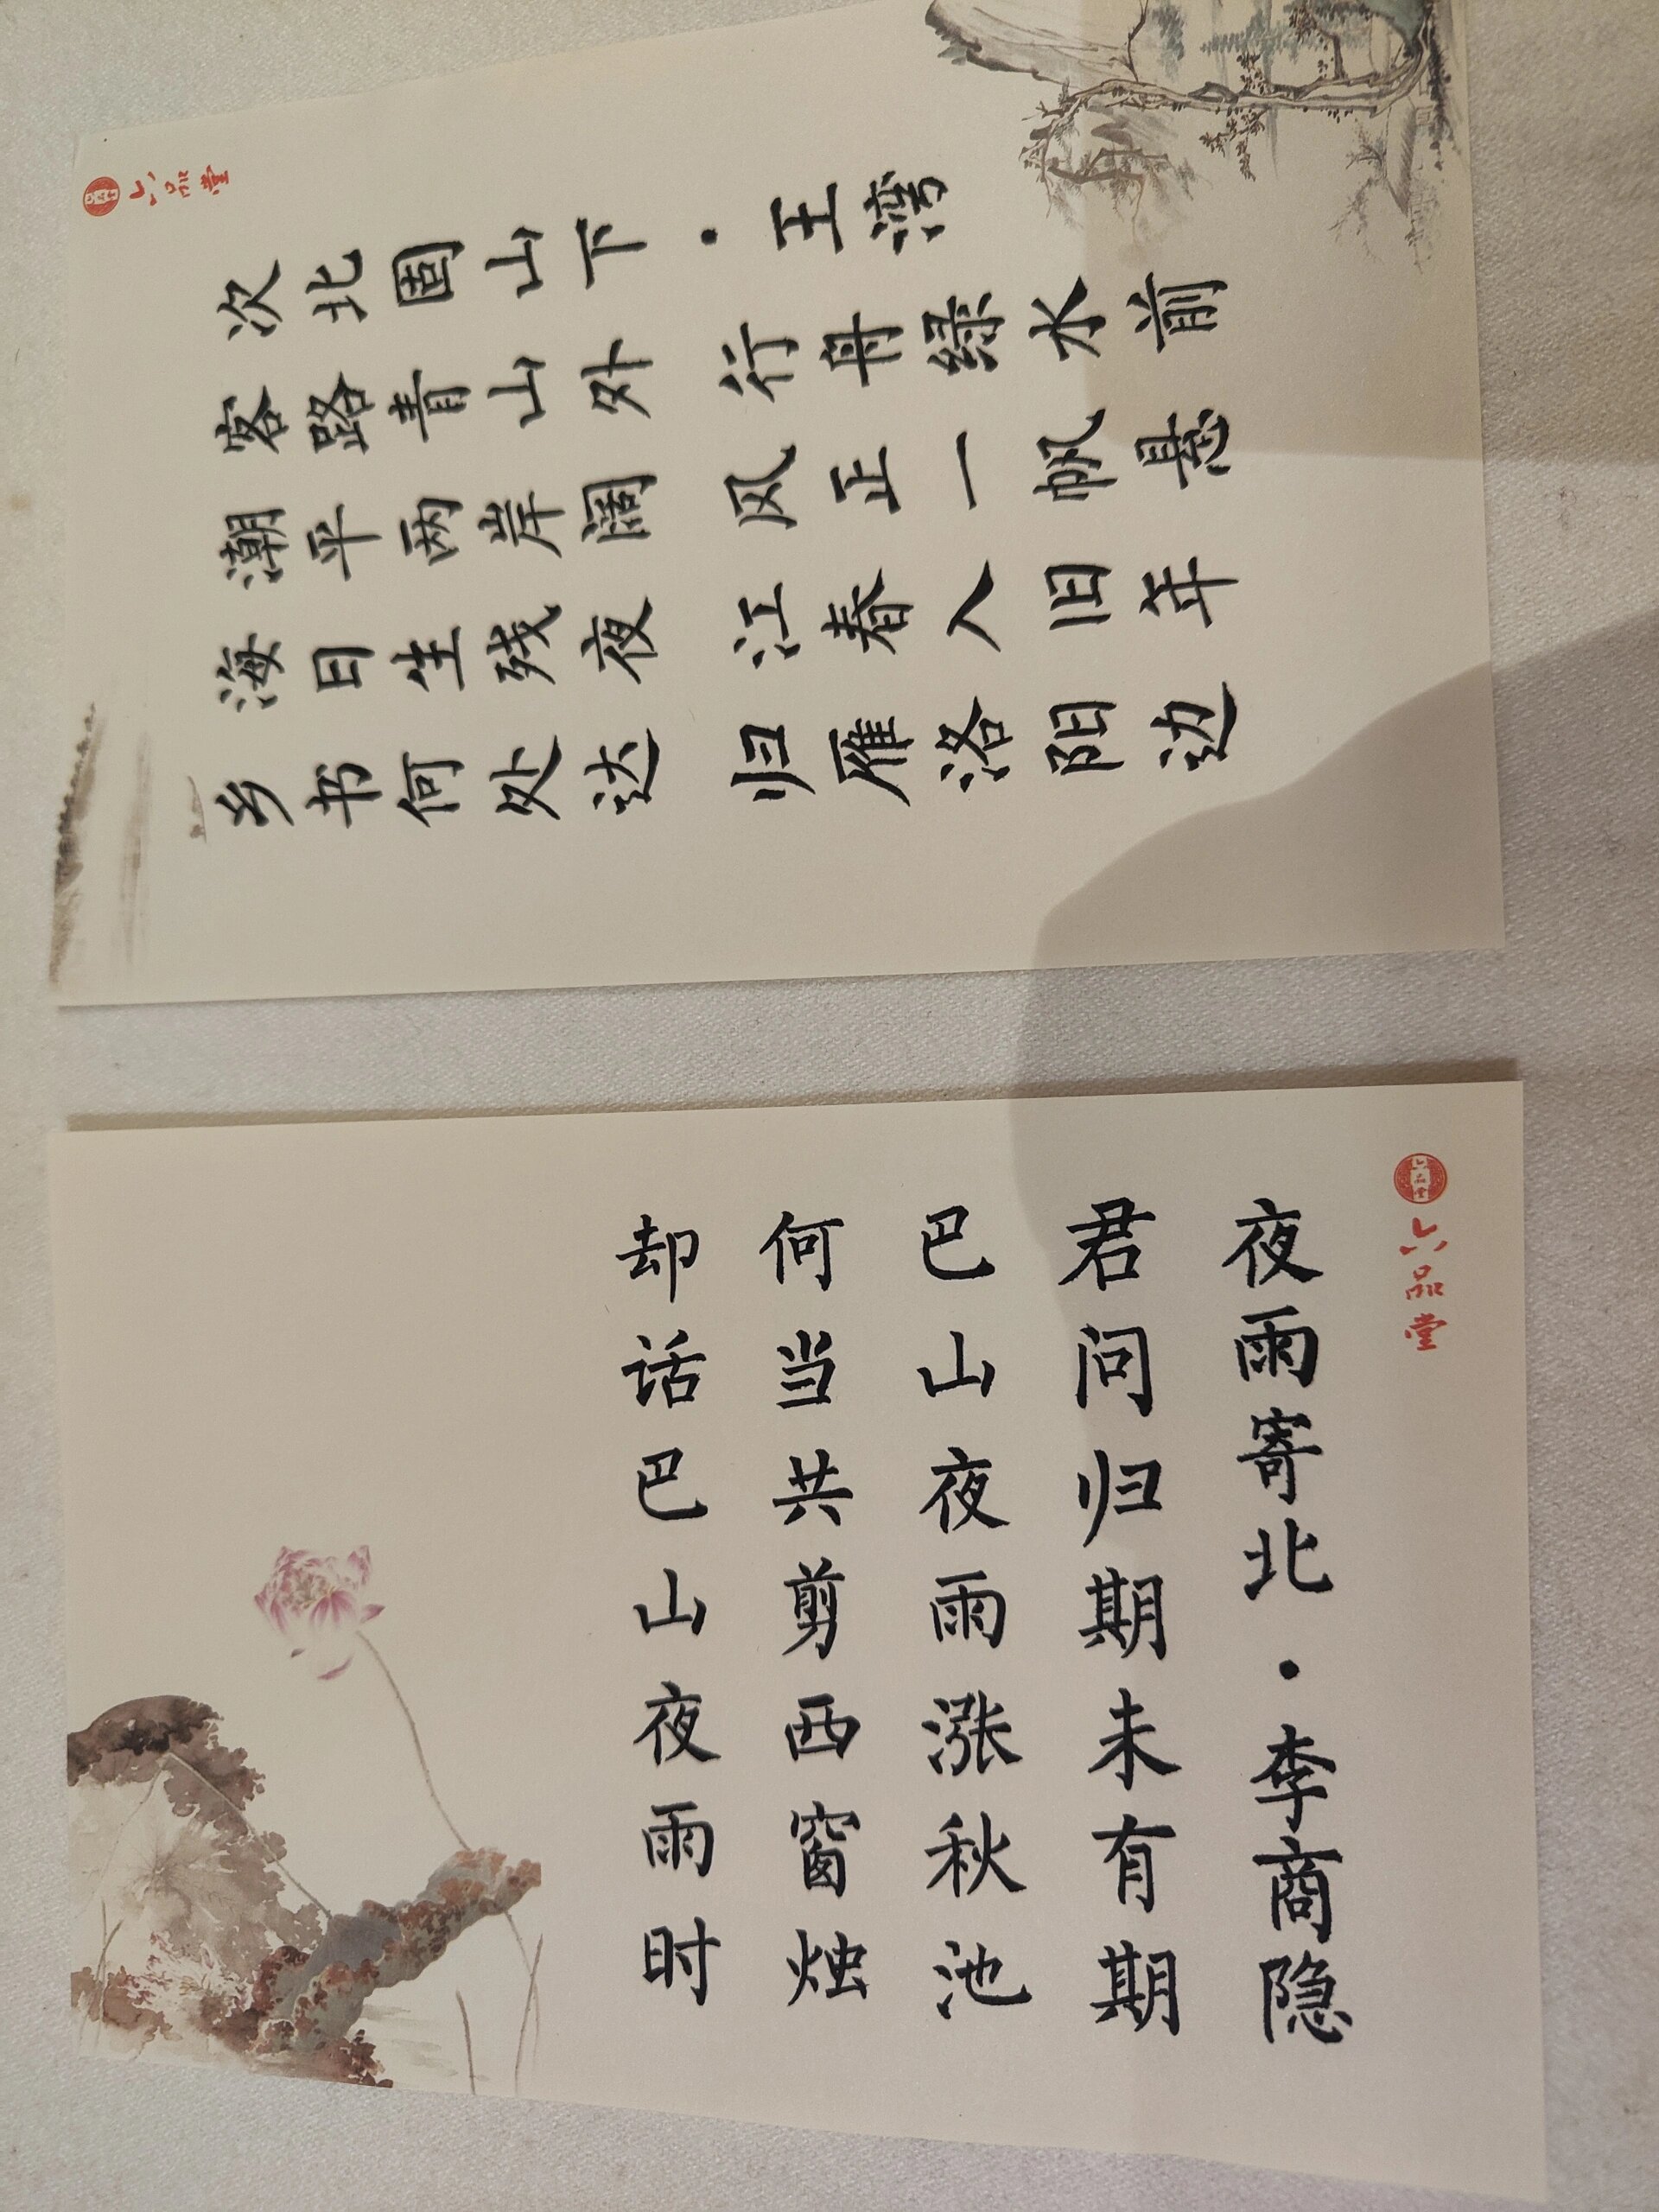 六品堂
次北固山下·王湾
客路青山外 行舟绿水前
潮平两岸阔 风正一帆悬
海日生残夜 江春入旧年
乡书何处达 归雁洛阳边
六品堂
六品堂
夜雨寄北·李商隐
君问归期未有期
巴山夜雨涨秋池
何当共剪西窗烛
却话巴山夜雨时